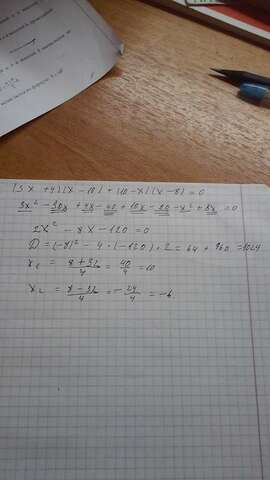 (3x + 4)(x - 10) + (10 - x)(x - 8) = 0
3x² - 30x + 4x - 40 + 10x - 80 - x² + 8x = 0
2x² - 8x - 120 = 0
D = (-8)² - 4 · (-120) · 2 = 64 + 960 = 1024
x₁ = (8 + 32)/4 = 40/4 = 10
x₂ = (8 - 32)/4 = -24/4 = -6